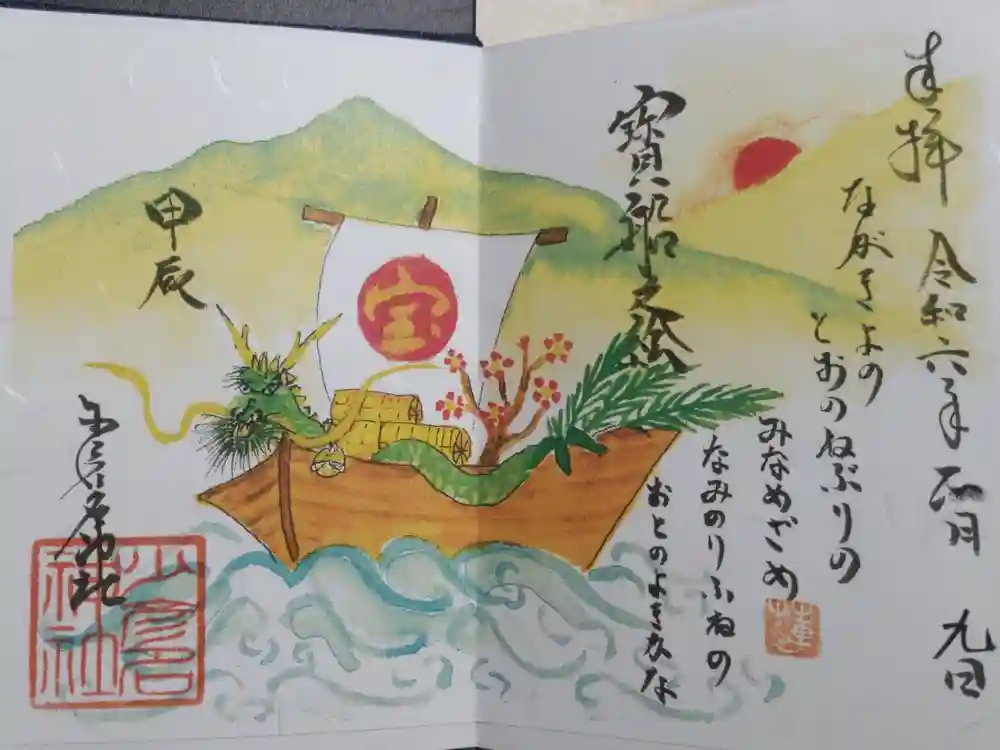 奉拝 令和六年 正月 九日
ながきよの
とおのねぶりの
みなめざめ
なみのりふねの
おとのよきかな
寶船之絵
宝
甲辰
神社